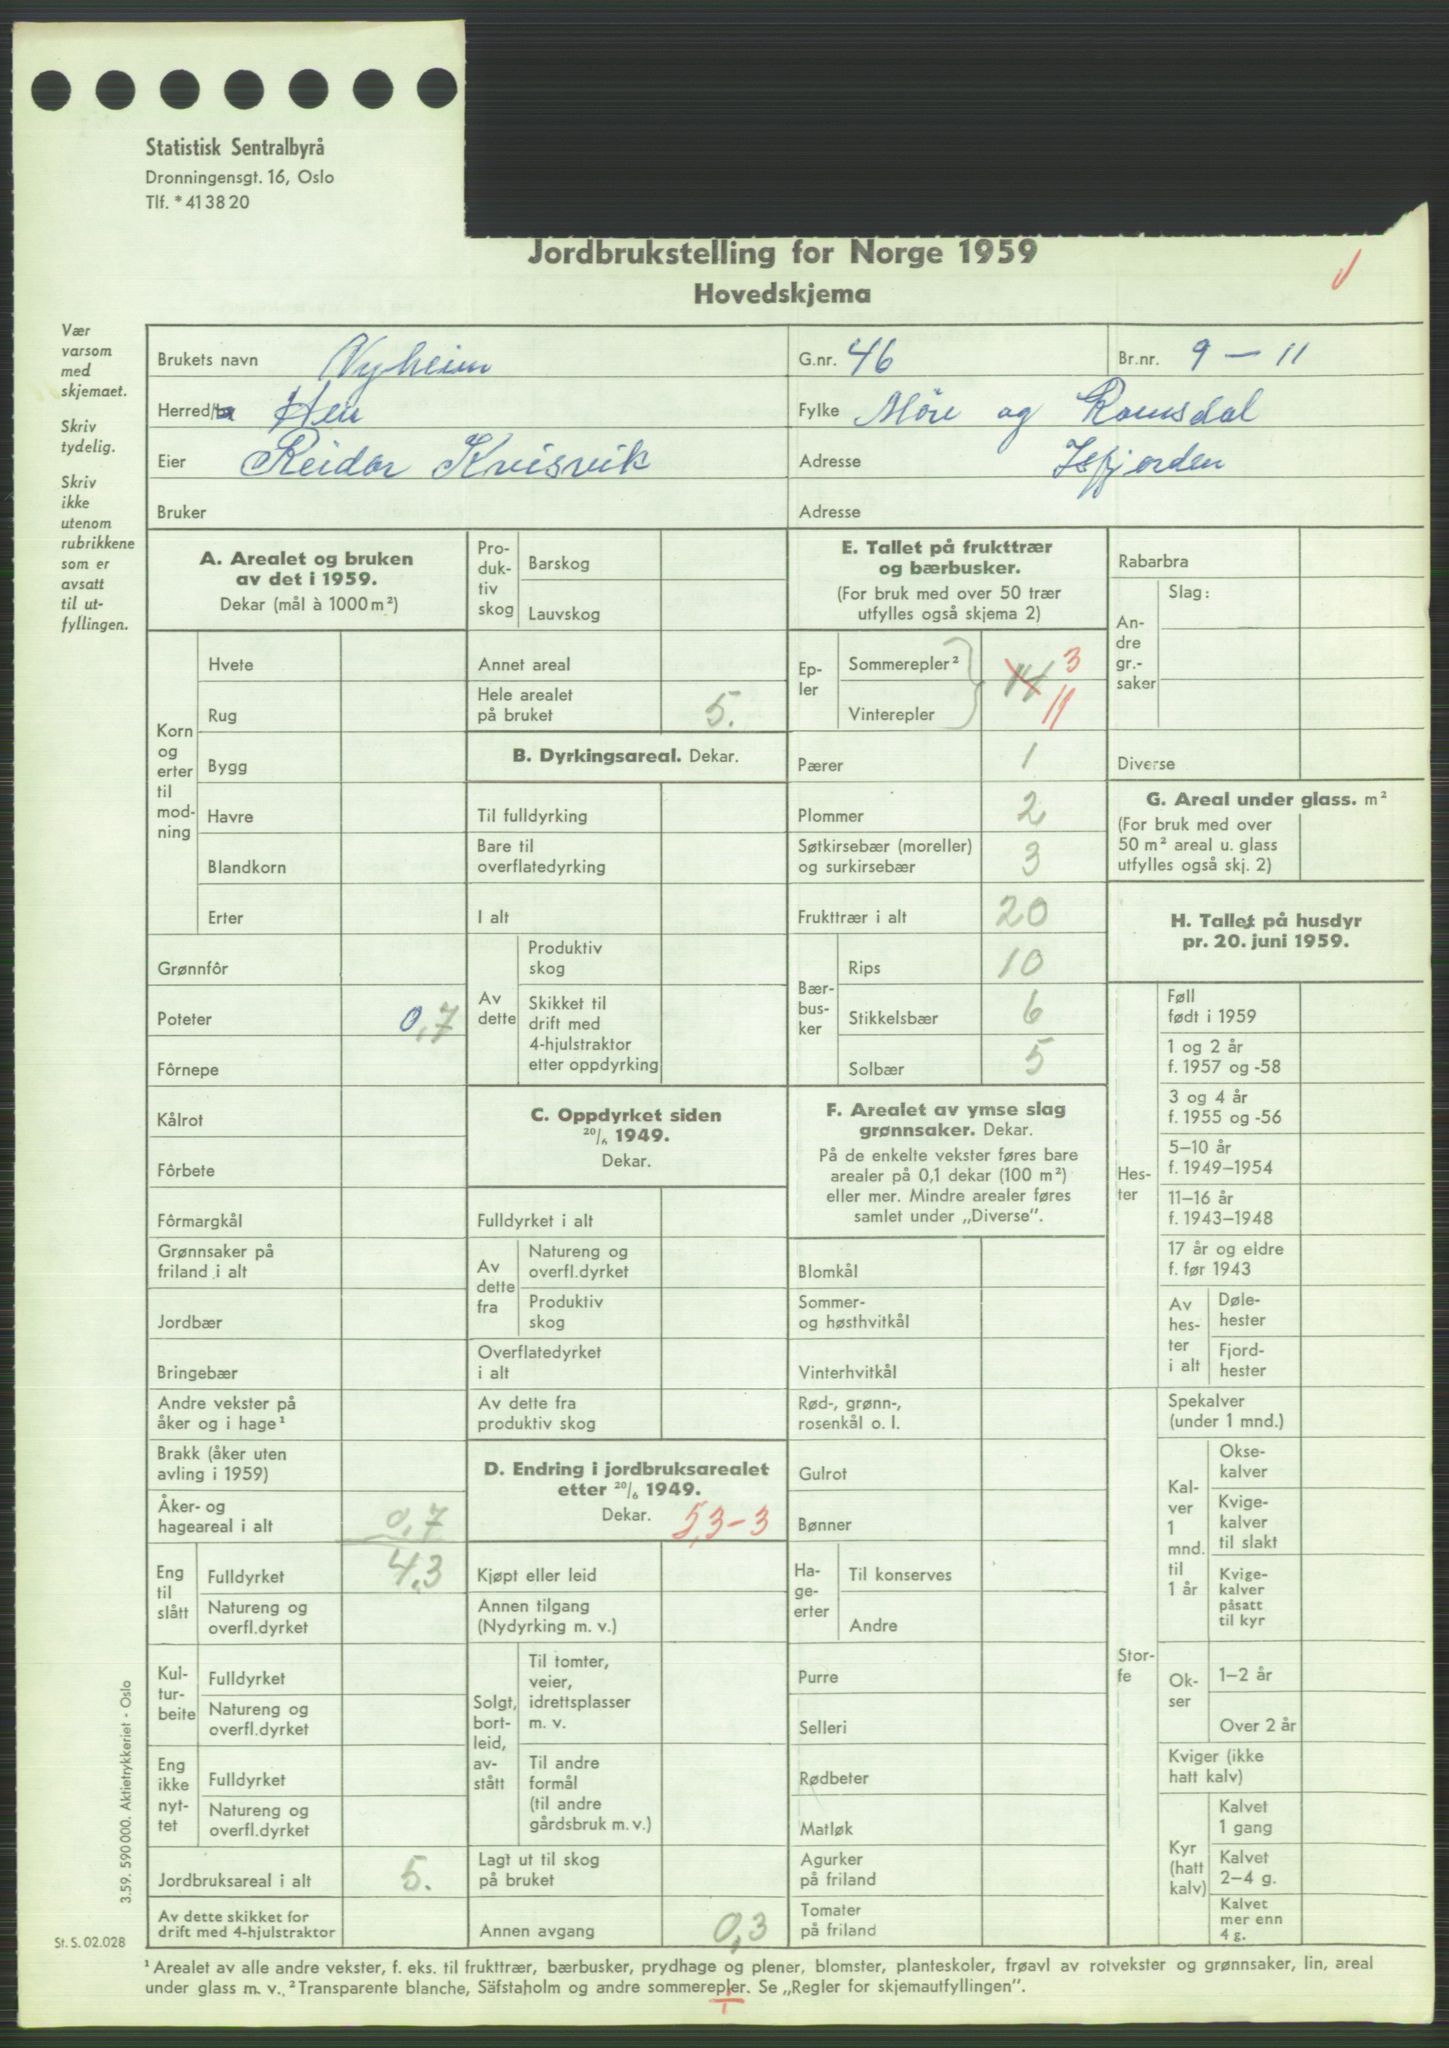 Statistisk Sentralbyrå
Dronningensgt. 16, Oslo
Tlf. *41 38 20
Jordbrukstelling for Norge 1959
Hovedskjema
Vær
varsom
med
skjemaet.
Skriv
tydelig.
Skriv
ikke
utenom
rubrikkene
som er
avsatt
til ut-
fyllingen.
Brukets navn Nyheim G.nr. 46 Br.nr. 9 – 11
Herred Hen Fylke Möre og Romsdal
Eier Reidar Kvisvik Adresse Isfjorden
Bruker Adresse
A. Arealet og bruken
av det i 1959.
Dekar (mål à 1000 m²)
Korn
og
erter
til
mod-
ning
Hvete
Rug
Bygg
Havre
Blandkorn
Erter
Grønnfôr
Poteter 0,7
Fôrnepe
Kålrot
Fôrbete
Fôrmargkål
Grønnsaker på
friland i alt
Jordbær
Bringebær
Andre vekster på
åker og i hage¹
Brakk (åker uten
avling i 1959)
Åker- og
hageareal i alt 0,7
Eng
til
slått
Fulldyrket 4,3
Natureng og
overfl.dyrket
Kul-
tur-
beite
Fulldyrket
Natureng og
overfl.dyrket
Eng
ikke
nyt-
tet
Fulldyrket
Natureng og
overfl.dyrket
Jordbruksareal i alt 5.
Av dette skikket for
drift med 4-hjulstraktor
Pro-
duk-
tiv
skog
Barskog
Lauvskog
Annet areal
Hele arealet
på bruket 5.
B. Dyrkingsareal. Dekar.
Til fulldyrking
Bare til
overflatedyrking
I alt
Av
dette
Produktiv
skog
Skikket til
drift med
4-hjulstraktor
etter oppdyrking
C. Oppdyrket siden
20/6 1949.
Dekar.
Fulldyrket i alt
Av
dette
fra
Natureng og
overfl.dyrket
Produktiv
skog
Overflatedyrket
i alt
Av dette fra
produktiv skog
D. Endring i jordbruksarealet
etter 20/6 1949.
Dekar. 5,3-3
Kjøpt eller leid
Annen tilgang
(Nydyrking m. v.)
Solgt,
bort-
leid,
av-
stått
Til tomter,
veier,
idrettsplasser
m. v.
Til andre
formål
(til andre
gårdsbruk m. v.)
Lagt ut til skog
på bruket
Annen avgang 0,3
E. Tallet på frukttrær
og bærbusker.
(For bruk med over 50 trær
utfylles også skjema 2)
Ep-
ler
Sommerepler² 14 3
Vinterepler 11
Pærer 1
Plommer 2
Søtkirsebær (moreller)
og surkirsebær 3
Frukttrær i alt 20
Bær-
bus-
ker
Rips 10
Stikkelsbær 6
Solbær 5
F. Arealet av ymse slag
grønnsaker. Dekar.
På de enkelte vekster føres bare
arealer på 0,1 dekar (100 m²)
eller mer. Mindre arealer føres
samlet under „Diverse”.
Blomkål
Sommer-
og høsthvitkål
Vinterhvitkål
Rød-, grønn-,
rosenkål o. l.
Gulrot
Bønner
Ha-
ge-
erter
Til konserves
Andre
Purre
Selleri
Rødbeter
Matløk
Agurker
på friland
Tomater
på friland
Rabarbra
An-
dre
gr.-
saker
Slag:
Diverse
G. Areal under glass. m²
(For bruk med over
50 m² areal u. glass
utfylles også skj. 2)
H. Tallet på husdyr
pr. 20. juni 1959.
Hes-
ter
Føll
født i 1959
1 og 2 år
f. 1957 og -58
3 og 4 år
f. 1955 og -56
5–10 år
f. 1949–1954
11–16 år
f. 1943–1948
17 år og eldre
f. før 1943
Av
hes-
ter
i alt
Døle-
hester
Fjord-
hester
Stor-
fe
Spekalver
(under 1 mnd.)
Kal-
ver
1
mnd.
til
1 år
Okse-
kalver
Kvige-
kalver
til slakt
Kvige-
kalver
påsatt
til kyr
Ok-
ser
1–2 år
Over 2 år
Kviger (ikke
hatt kalv)
Kyr
(hatt
kalv)
Kalvet
1 gang
Kalvet
2–4 g.
Kalvet
mer enn
4 g.
3.59. 590 000. Aktietrykkeriet - Oslo
St. S. 02.028
¹ Arealet av alle andre vekster, f. eks. til frukttrær, bærbusker, prydhage og plener, blomster, planteskoler, frøavl av rotvekster og grønnsaker, lin, areal
under glass m. v. ² Transparente blanche, Säfstaholm og andre sommerepler. Se „Regler for skjemautfyllingen”.